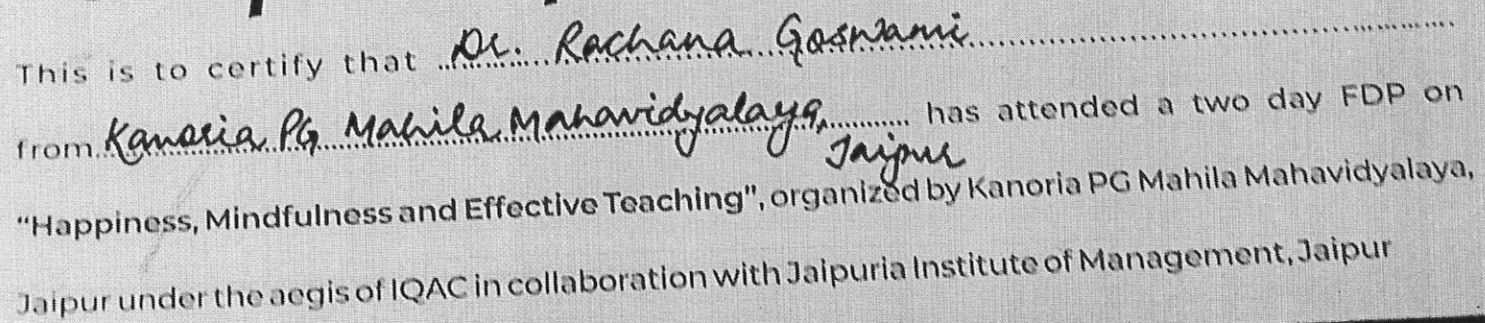 This is to certify that Dr. Rachana Goswami
from Kanoria PG Mahila Mahavidyalaya, has attended a two day FDP on
Jaipur
"Happiness, Mindfulness and Effective Teaching", organized by Kanoria PG Mahila Mahavidyalaya,
Jaipur under the aegis of IQAC in collaboration with Jaipuria Institute of Management, Jaipur